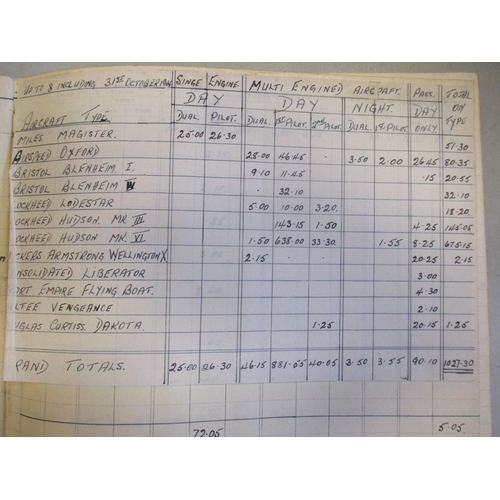 UP TO & INCLUDING 31ST OCTOBER SINGE ENGINE MULTI ENGINED AIRCRAFT. PASS. TOTAL
DAY DAY NIGHT. DAY ON
AIRCRAFT TYPE. DUAL. PILOT. DUAL. 1ST PILOT. 2ND PILOT. DUAL. 1ST PILOT. ONLY. TYPE
MILES MAGISTER. 25.00 26.30 51.30
AIRSPEED OXFORD 28.00 46.45 . 3.50 2.00 26.45 80.35
BRISTOL BLENHEIM I. 9.10 11.45 .15 20.55
BRISTOL BLENHEIM IV . 32.10 32.10
OCKHEED LODESTAR 5.00 10.00 3.20 18.20
OCKHEED HUDSON. MK. III 143.15 1.50 4.25 145.05
OCKHEED HUDSON MK. VI 1.50 638.00 33.30 1.55 8.25 675.15
CKERS ARMSTRONG WELLINGTON X 2.15 20.25 2.15
NSOLIDATED LIBERATOR 3.00
ORT EMPIRE FLYING BOAT. 4.30
LTEE VENGEANCE 2.10
UGLAS CURTISS DAKOTA. 1.25 20.15 1.25
RAND TOTALS. 25.00 26.30 46.15 881.55 40.05 3.50 3.55 90.10 1027.30
72.05 5.05